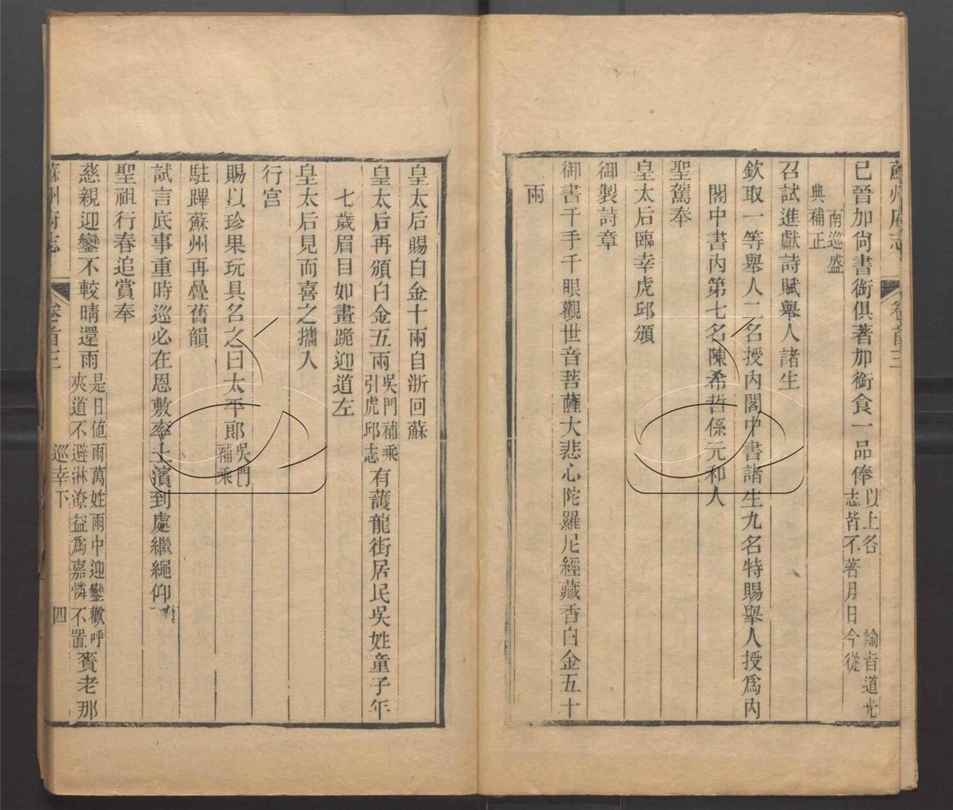 蘇州府志 卷首三
已晉加尚書銜俱著加銜食一品俸以上各諭旨道光
志皆不著月日今從
南巡盛
典補正
召試進獻詩賦舉人諸生
欽取一等舉人二名授內閣中書諸生九名特賜舉人授為內
閣中書內第七名陳希哲係元和人
聖駕奉
皇太后臨幸虎邱頒
御製詩章
御書千手千眼觀世音菩薩大悲心陀羅尼經藏香白金五十
兩
皇太后賜白金十兩自浙回蘇
皇太后再頒白金五兩吳門補乘
引虎邱志有護龍街居民吳姓童子年
七歲眉目如畫跪迎道左
皇太后見而喜之攜入
行宮
賜以珍果玩具名之曰太平郎吳門
補乘
駐蹕蘇州再疊舊韻
試言底事重時巡必在恩敷率土濱到處繼繩仰
聖祖行春追賞奉
慈親迎鑾不較晴還雨是日值雨萬姓雨中迎鑾歡呼
夾道不避淋潦益為嘉憐不置賚老那
蘇州府志 卷首三 巡幸下 四